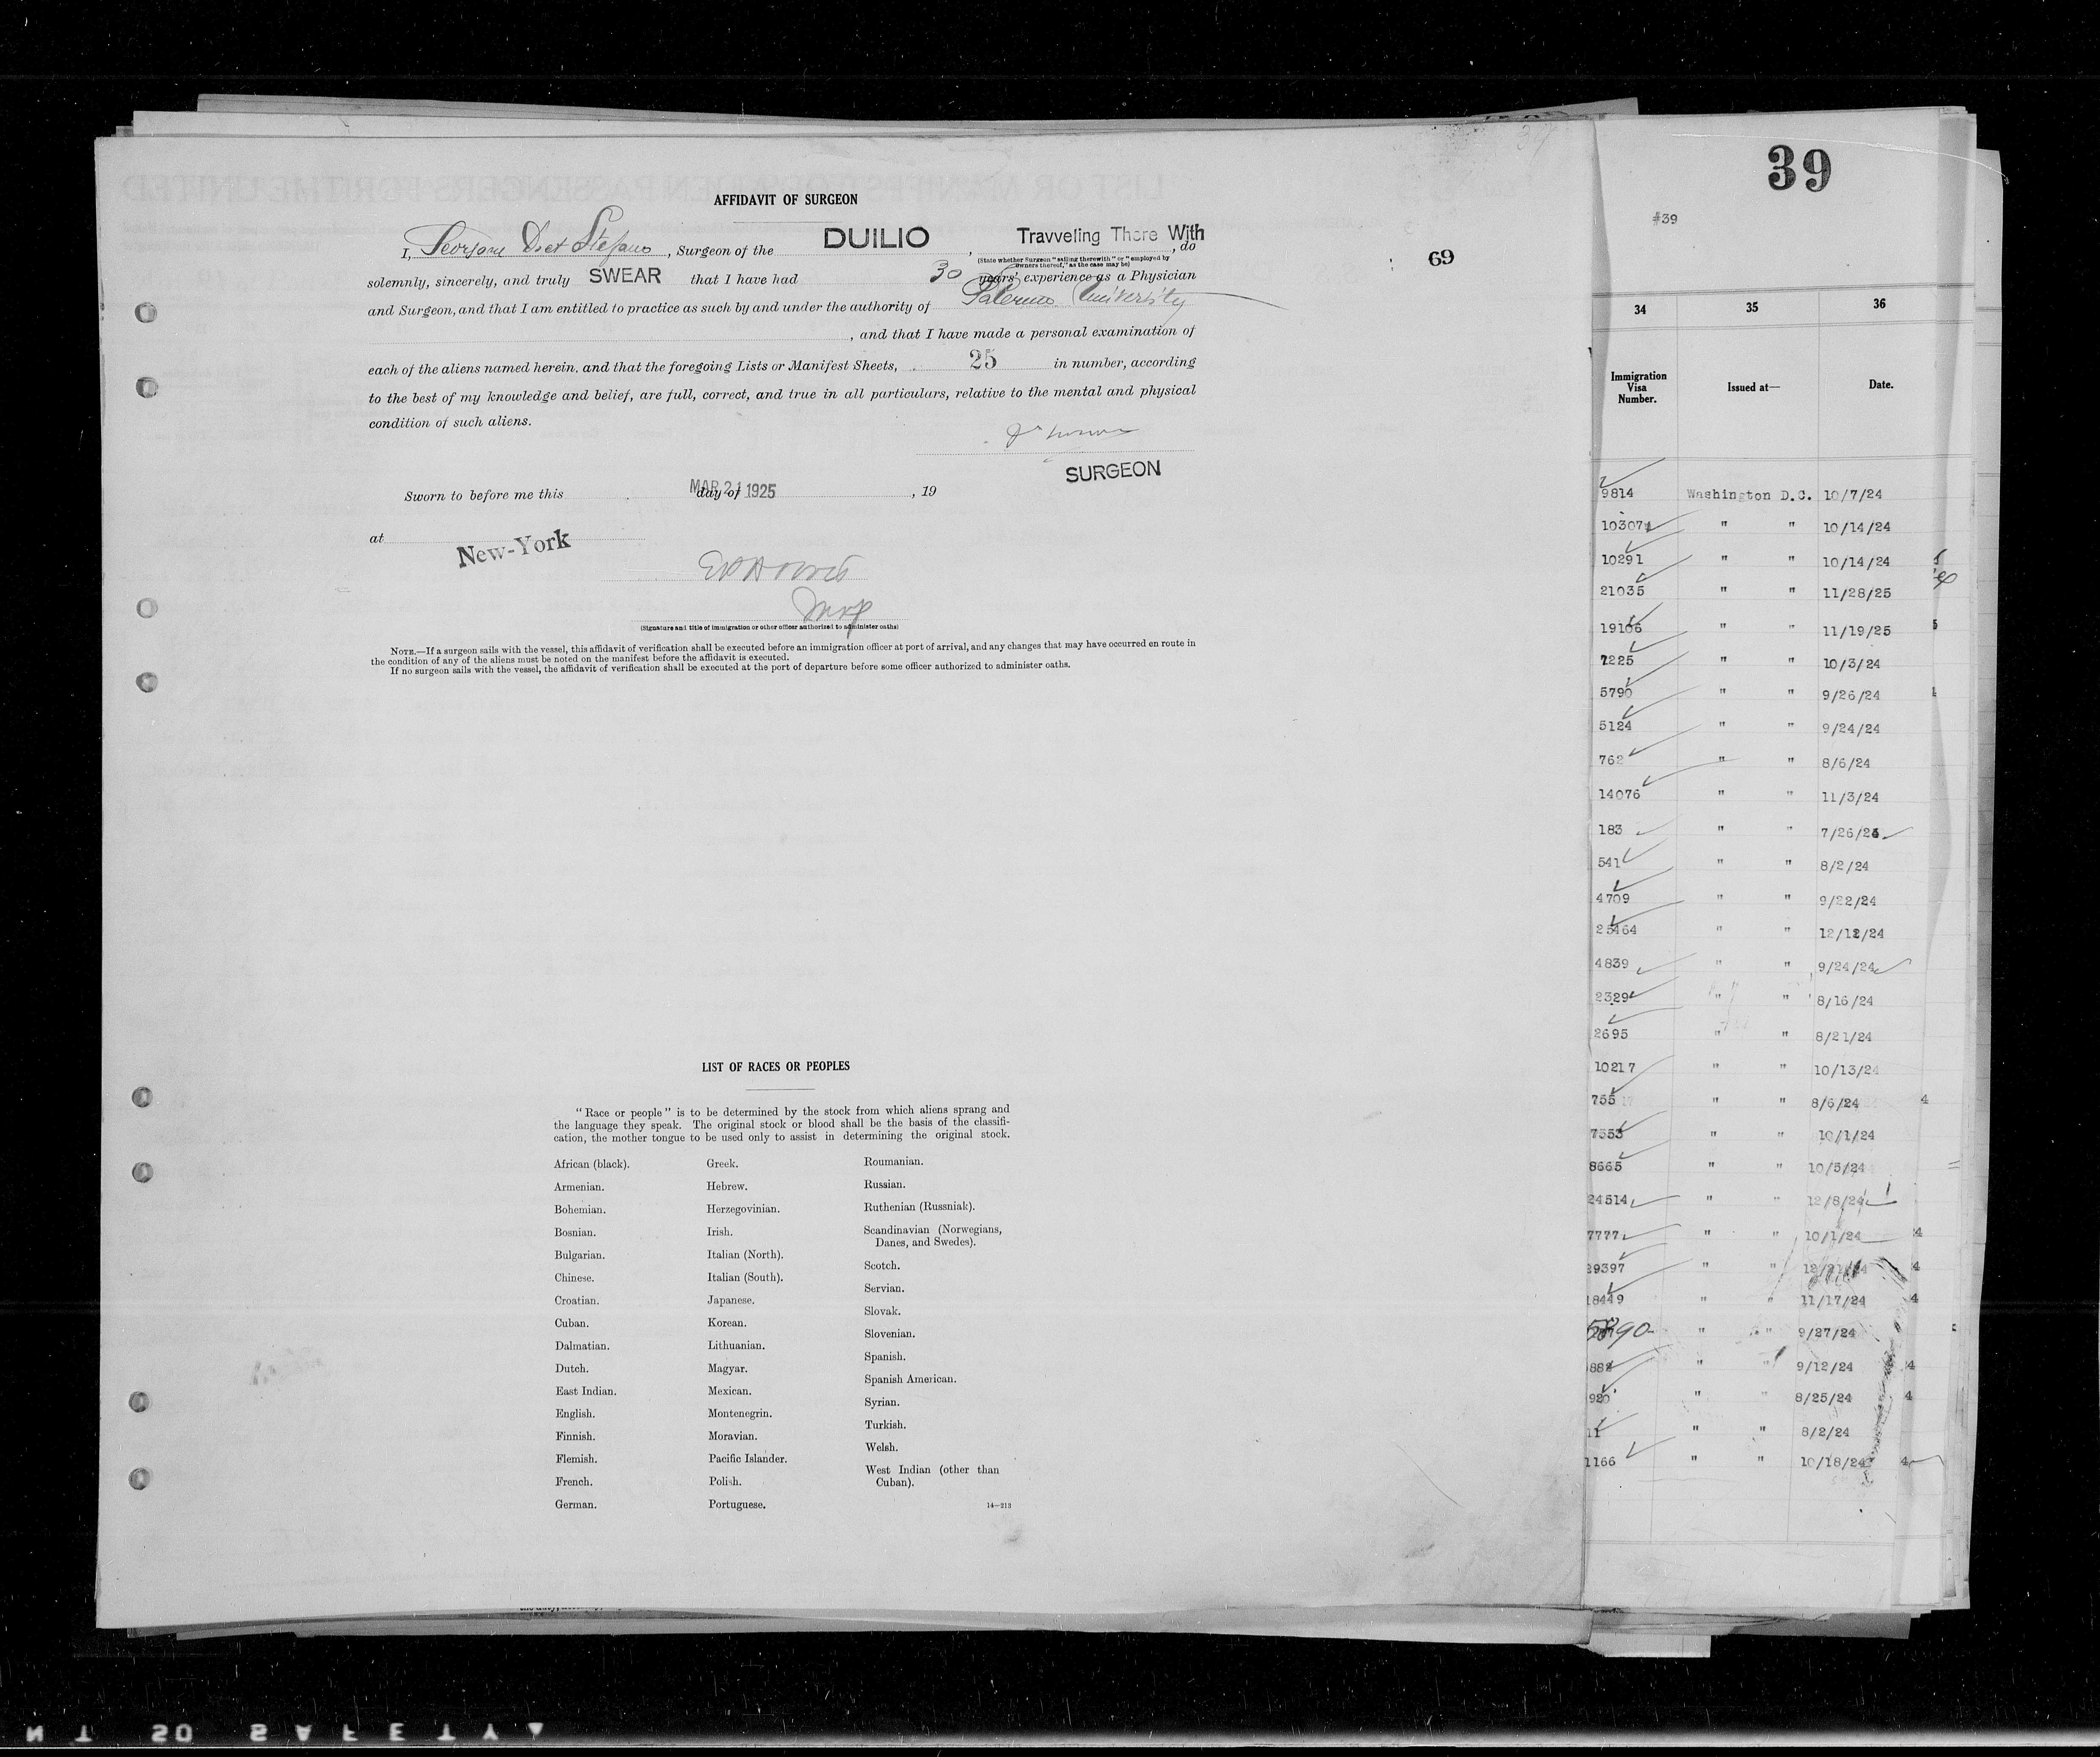 AFFIDAVIT OF SURGEON
I, Stefano , Surgeon of the DUILIO , Travveling There With , do
(State whether Surgeon "sailing therewith" or "employed by
owners thereof," as the case may be)
solemnly, sincerely, and truly SWEAR that I have had 30 years' experience as a Physician
and Surgeon, and that I am entitled to practice as such by and under the authority of Palermo University
, and that I have made a personal examination of
each of the aliens named herein, and that the foregoing Lists or Manifest Sheets, 25 in number, according
to the best of my knowledge and belief, are full, correct, and true in all particulars, relative to the mental and physical
condition of such aliens.
SURGEON
Sworn to before me this MAR 21 1925 day of , 19
at New-York
(Signature and title of immigration or other officer authorized to administer oaths)
NOTE.—If a surgeon sails with the vessel, this affidavit of verification shall be executed before an immigration officer at port of arrival, and any changes that may have occurred en route in
the condition of any of the aliens must be noted on the manifest before the affidavit is executed.
If no surgeon sails with the vessel, the affidavit of verification shall be executed at the port of departure before some officer authorized to administer oaths.
69
LIST OF RACES OR PEOPLES
"Race or people" is to be determined by the stock from which aliens sprang and
the language they speak. The original stock or blood shall be the basis of the classifi-
cation, the mother tongue to be used only to assist in determining the original stock.
African (black).
Armenian.
Bohemian.
Bosnian.
Bulgarian.
Chinese.
Croatian.
Cuban.
Dalmatian.
Dutch.
East Indian.
English.
Finnish.
Flemish.
French.
German.
Greek.
Hebrew.
Herzegovinian.
Irish.
Italian (North).
Italian (South).
Japanese.
Korean.
Lithuanian.
Magyar.
Mexican.
Montenegrin.
Moravian.
Pacific Islander.
Polish.
Portuguese.
Roumanian.
Russian.
Ruthenian (Russniak).
Scandinavian (Norwegians,
Danes, and Swedes).
Scotch.
Servian.
Slovak.
Slovenian.
Spanish.
Spanish American.
Syrian.
Turkish.
Welsh.
West Indian (other than
Cuban).
14—213
39
#39
34 35 36
Immigration
Visa
Number.
Issued at—
Date.
9814 Washington D.C. 10/7/24
10307 " " 10/14/24
10291 " " 10/14/24
21035 " " 11/28/25
19106 " " 11/19/25
7225 " " 10/3/24
5790 " " 9/26/24
5124 " " 9/24/24
762 " " 8/6/24
14076 " " 11/3/24
183 " " 7/26/24
541 " " 8/2/24
4709 " " 9/22/24
25464 " " 12/12/24
4839 " " 9/24/24
2329 " " 8/16/24
2695 " " 8/21/24
10217 " " 10/13/24
755 " " 8/6/24 4
7553 " " 10/1/24
8665 " " 10/5/24
24514 " " 12/8/24
7777 " " 10/1/24 4
29397 " " 4
18449 " " 11/17/24 4
" " 9/27/24
882 " " 9/12/24 4
920 " " 8/25/24 4
11 " " 8/2/24
1166 " " 10/18/24 4
SAFETY